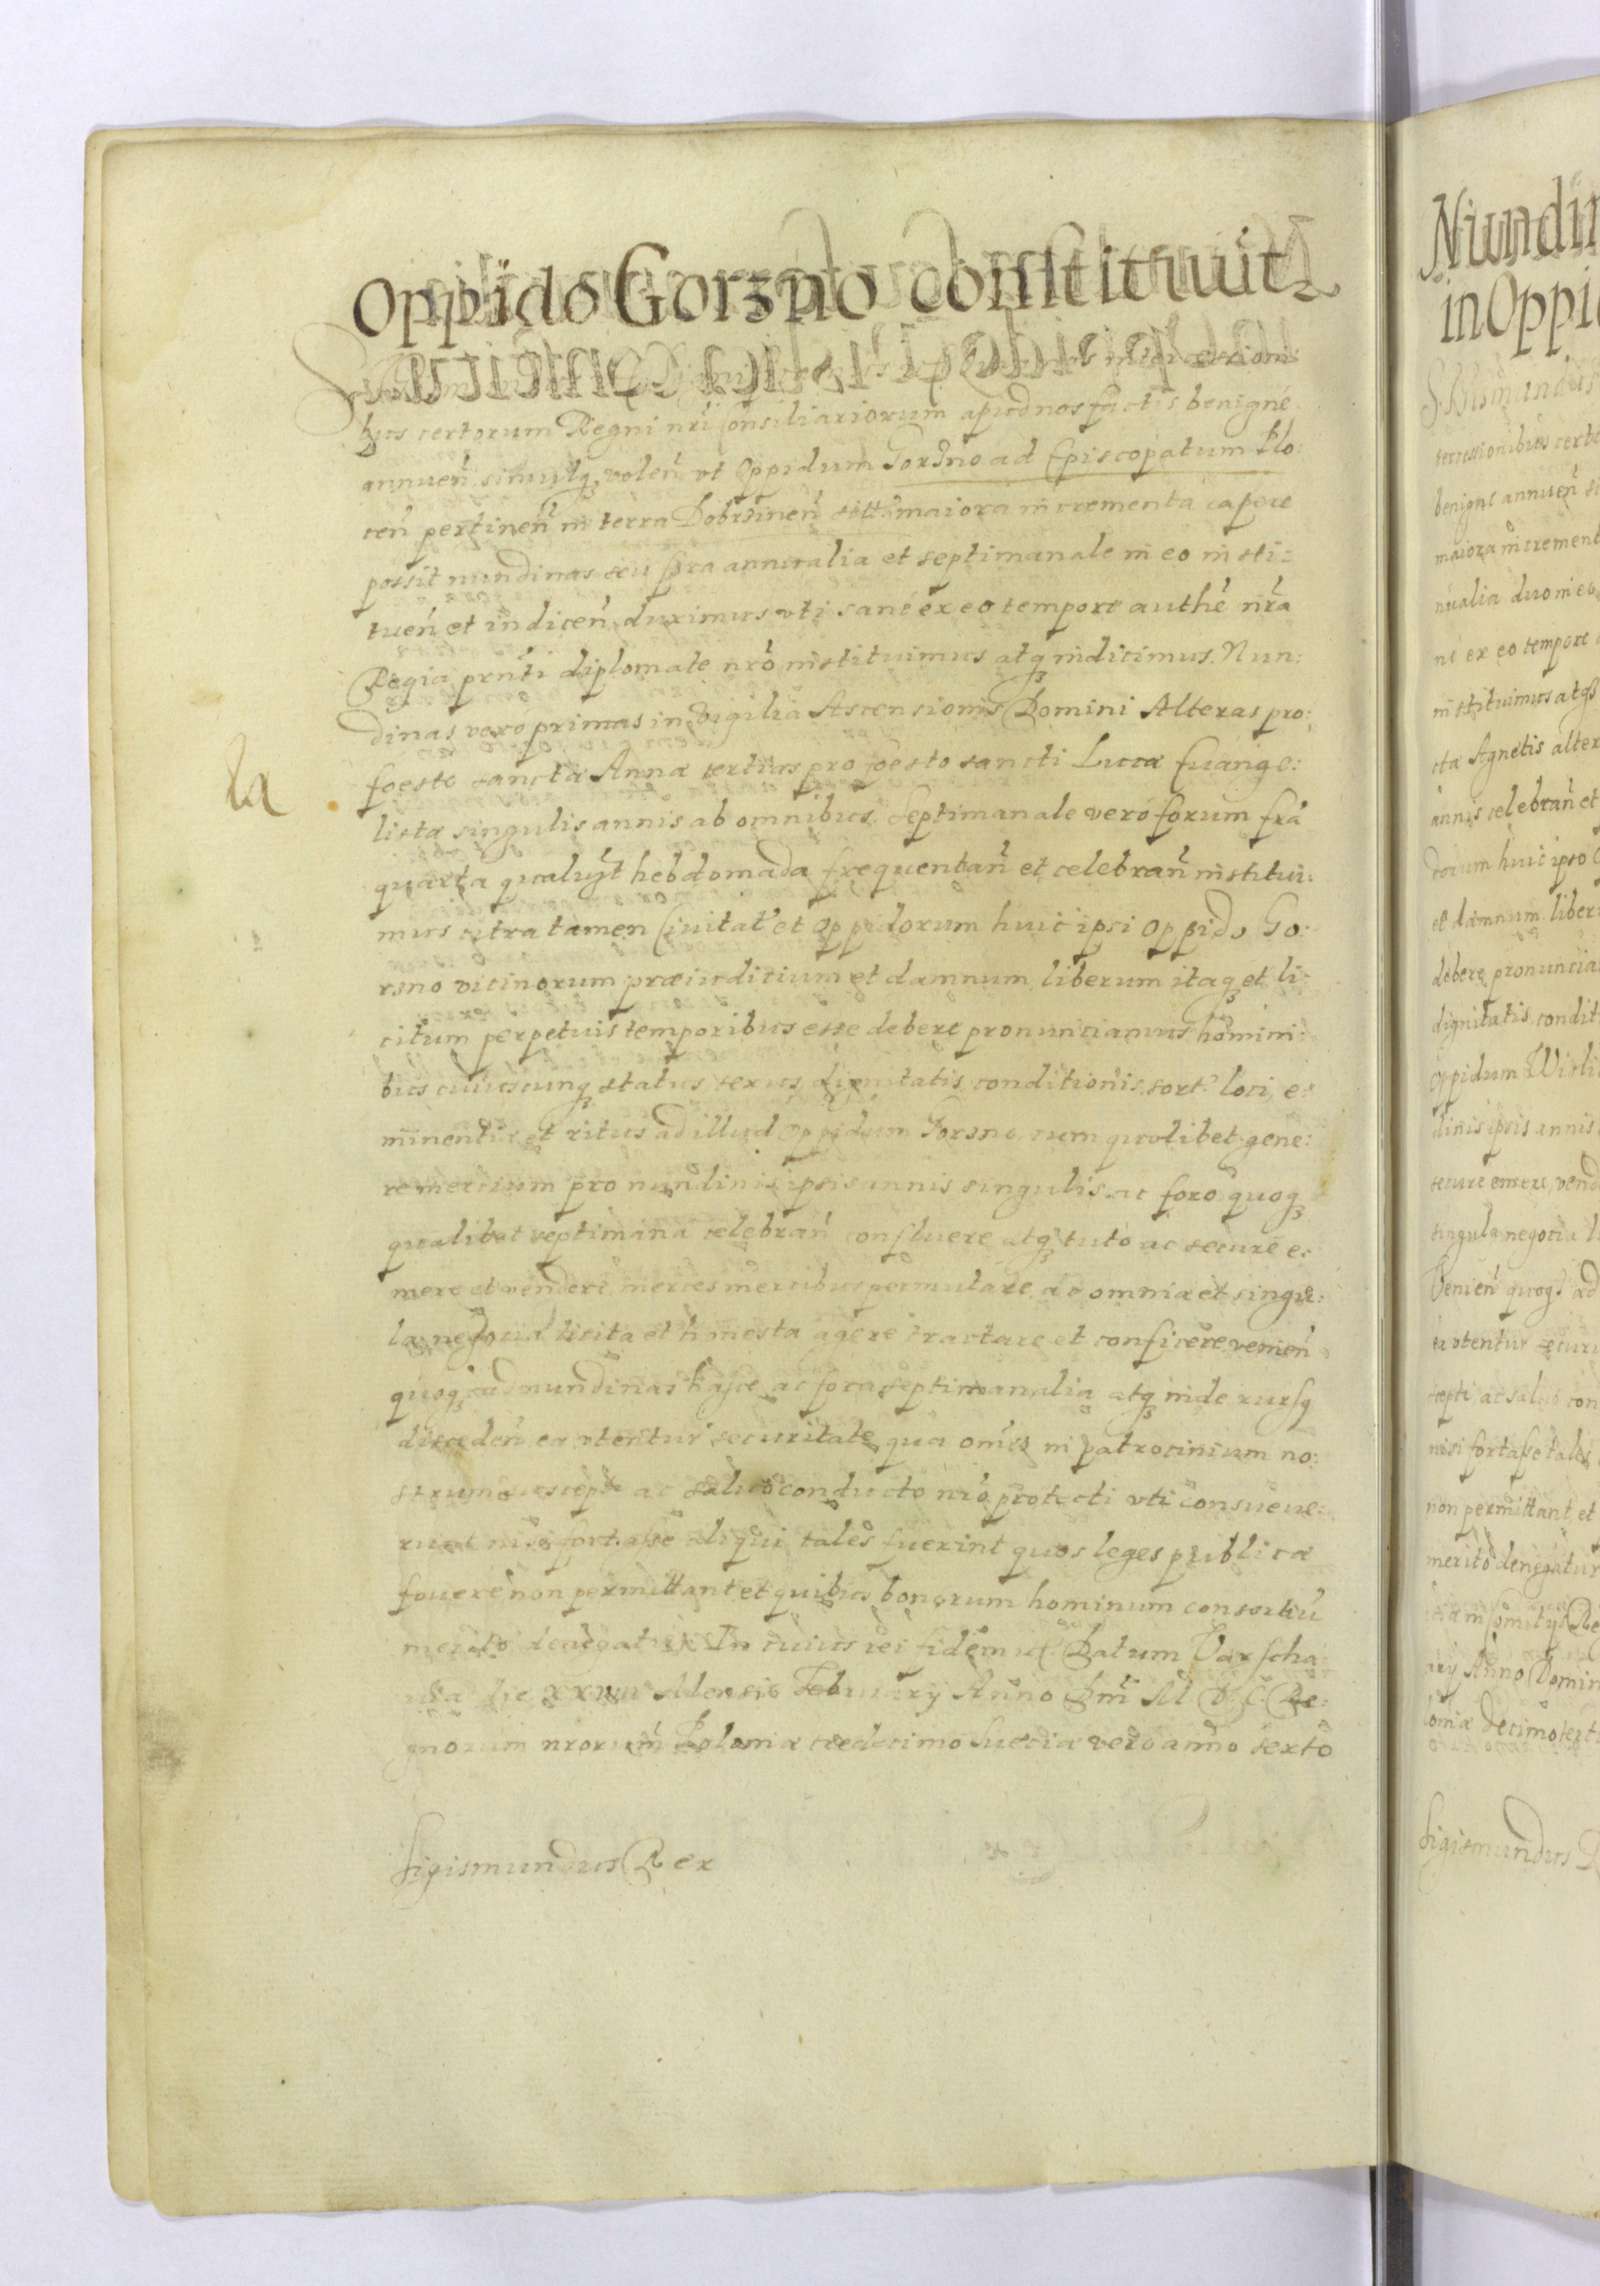 Oppido Gorzno constituunt
bus certorum Regni nri Consiliariorum apud nos factis benigné
annuen̄ simulq̨ volen̄ vt Oppidum Gorzno ad Episcopatum Plo:
cen̄ pertinen̄ in terra Dobrzinen̄ maiora incrementa capere
possit nundinas seu fora annualia et septimanale in eo insti:
tuen̄ et indicen̄ duximus vti sané ex eo tempore authē nr̄a
Regia prn̄ti diplomate nr̄o instituimus atq̨ indicimus. Nun:
dinas vero primas in vigilia Ascensionis Domini Alteras pro
foesto sanctæ Annæ tertias pro foesto sancti Lucæ Euange:
listæ singulis annis ab omnibus. Septimanale veró forum fr̄a
quarta qualibt hebdomada frequentan̄ et celebran̄ institui:
mus citra tamen Ciuitat̄ et Oppidorum huic ipsi Oppido Go:
rzno vicinorum præiuditium et damnum liberum itaq̨ et li:
citum perpetuis temporibus esse debere pronunciamus homini:
bus cuiuscunq̨ status sexus dignitatis conditionis sort. loci e:
minentiæ et ritus ad illud Oppidum Gorzno cum quolibet gene:
re mercium pro nundinis ipsis annis singulis ac foro quoq̨
qualibet septimana celebran̄ confluere atq̨ tuto ac secure e:
mere et vendere merces mercibus permutare ac omnia et singu:
la negocia licita et honesta agere tractare et conficere venien̄
quoq̨ ad nundinas hasce ac fora septimanalia atq̨ inde rursq
disceden̄ ea vtentur securitate qua om̄es in patrocinium no:
strum suscepti ac saluo conducto nr̄o protecti vti consueue:
runt nisi fortasse aliqui tales fuerint quos leges publicæ
fouere non permittant et quibus bonorum hominum consortiū
merito denegatur In cuius rei fidem Datum Varscha
uiæ die Mensis Februarij Anno Dm̄i M D C Re:
gnorum nrorum̄ Poloniæ tredecimo Sueciæ vero anno sexto
Sigismundus Rex
Nundin
in Oppid
Sigismundus
tercessionibus certo
benigne annuen̄ si
maiora increment
nualia duo in eo
né ex eo tempore
instituimus atq̨
ctæ Agnetis alter
annis celebran̄ et
dorum huic ipso O
et damnum liber
debere pronuncia
dignitatis condit
Oppidum Wisli
dinis ipsis annis
secure emere vend
singula negocia li
Venien̄ quoq̨ ad
ea vtentur securi
cepti ac saluo con
nisi fortasse tales
non permittant et
merito denegatur
Re
arij Anno Domin
loniæ Decimotert
Sigismundus R